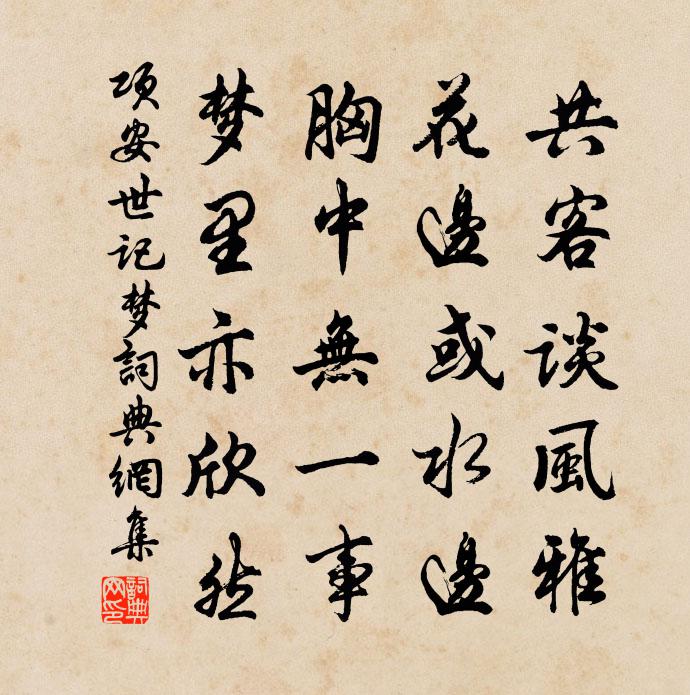 共客谈風雅
花邊或水邊
胸中無一事
梦里亦欣然
项安世记梦詞典網集
詞典
网印